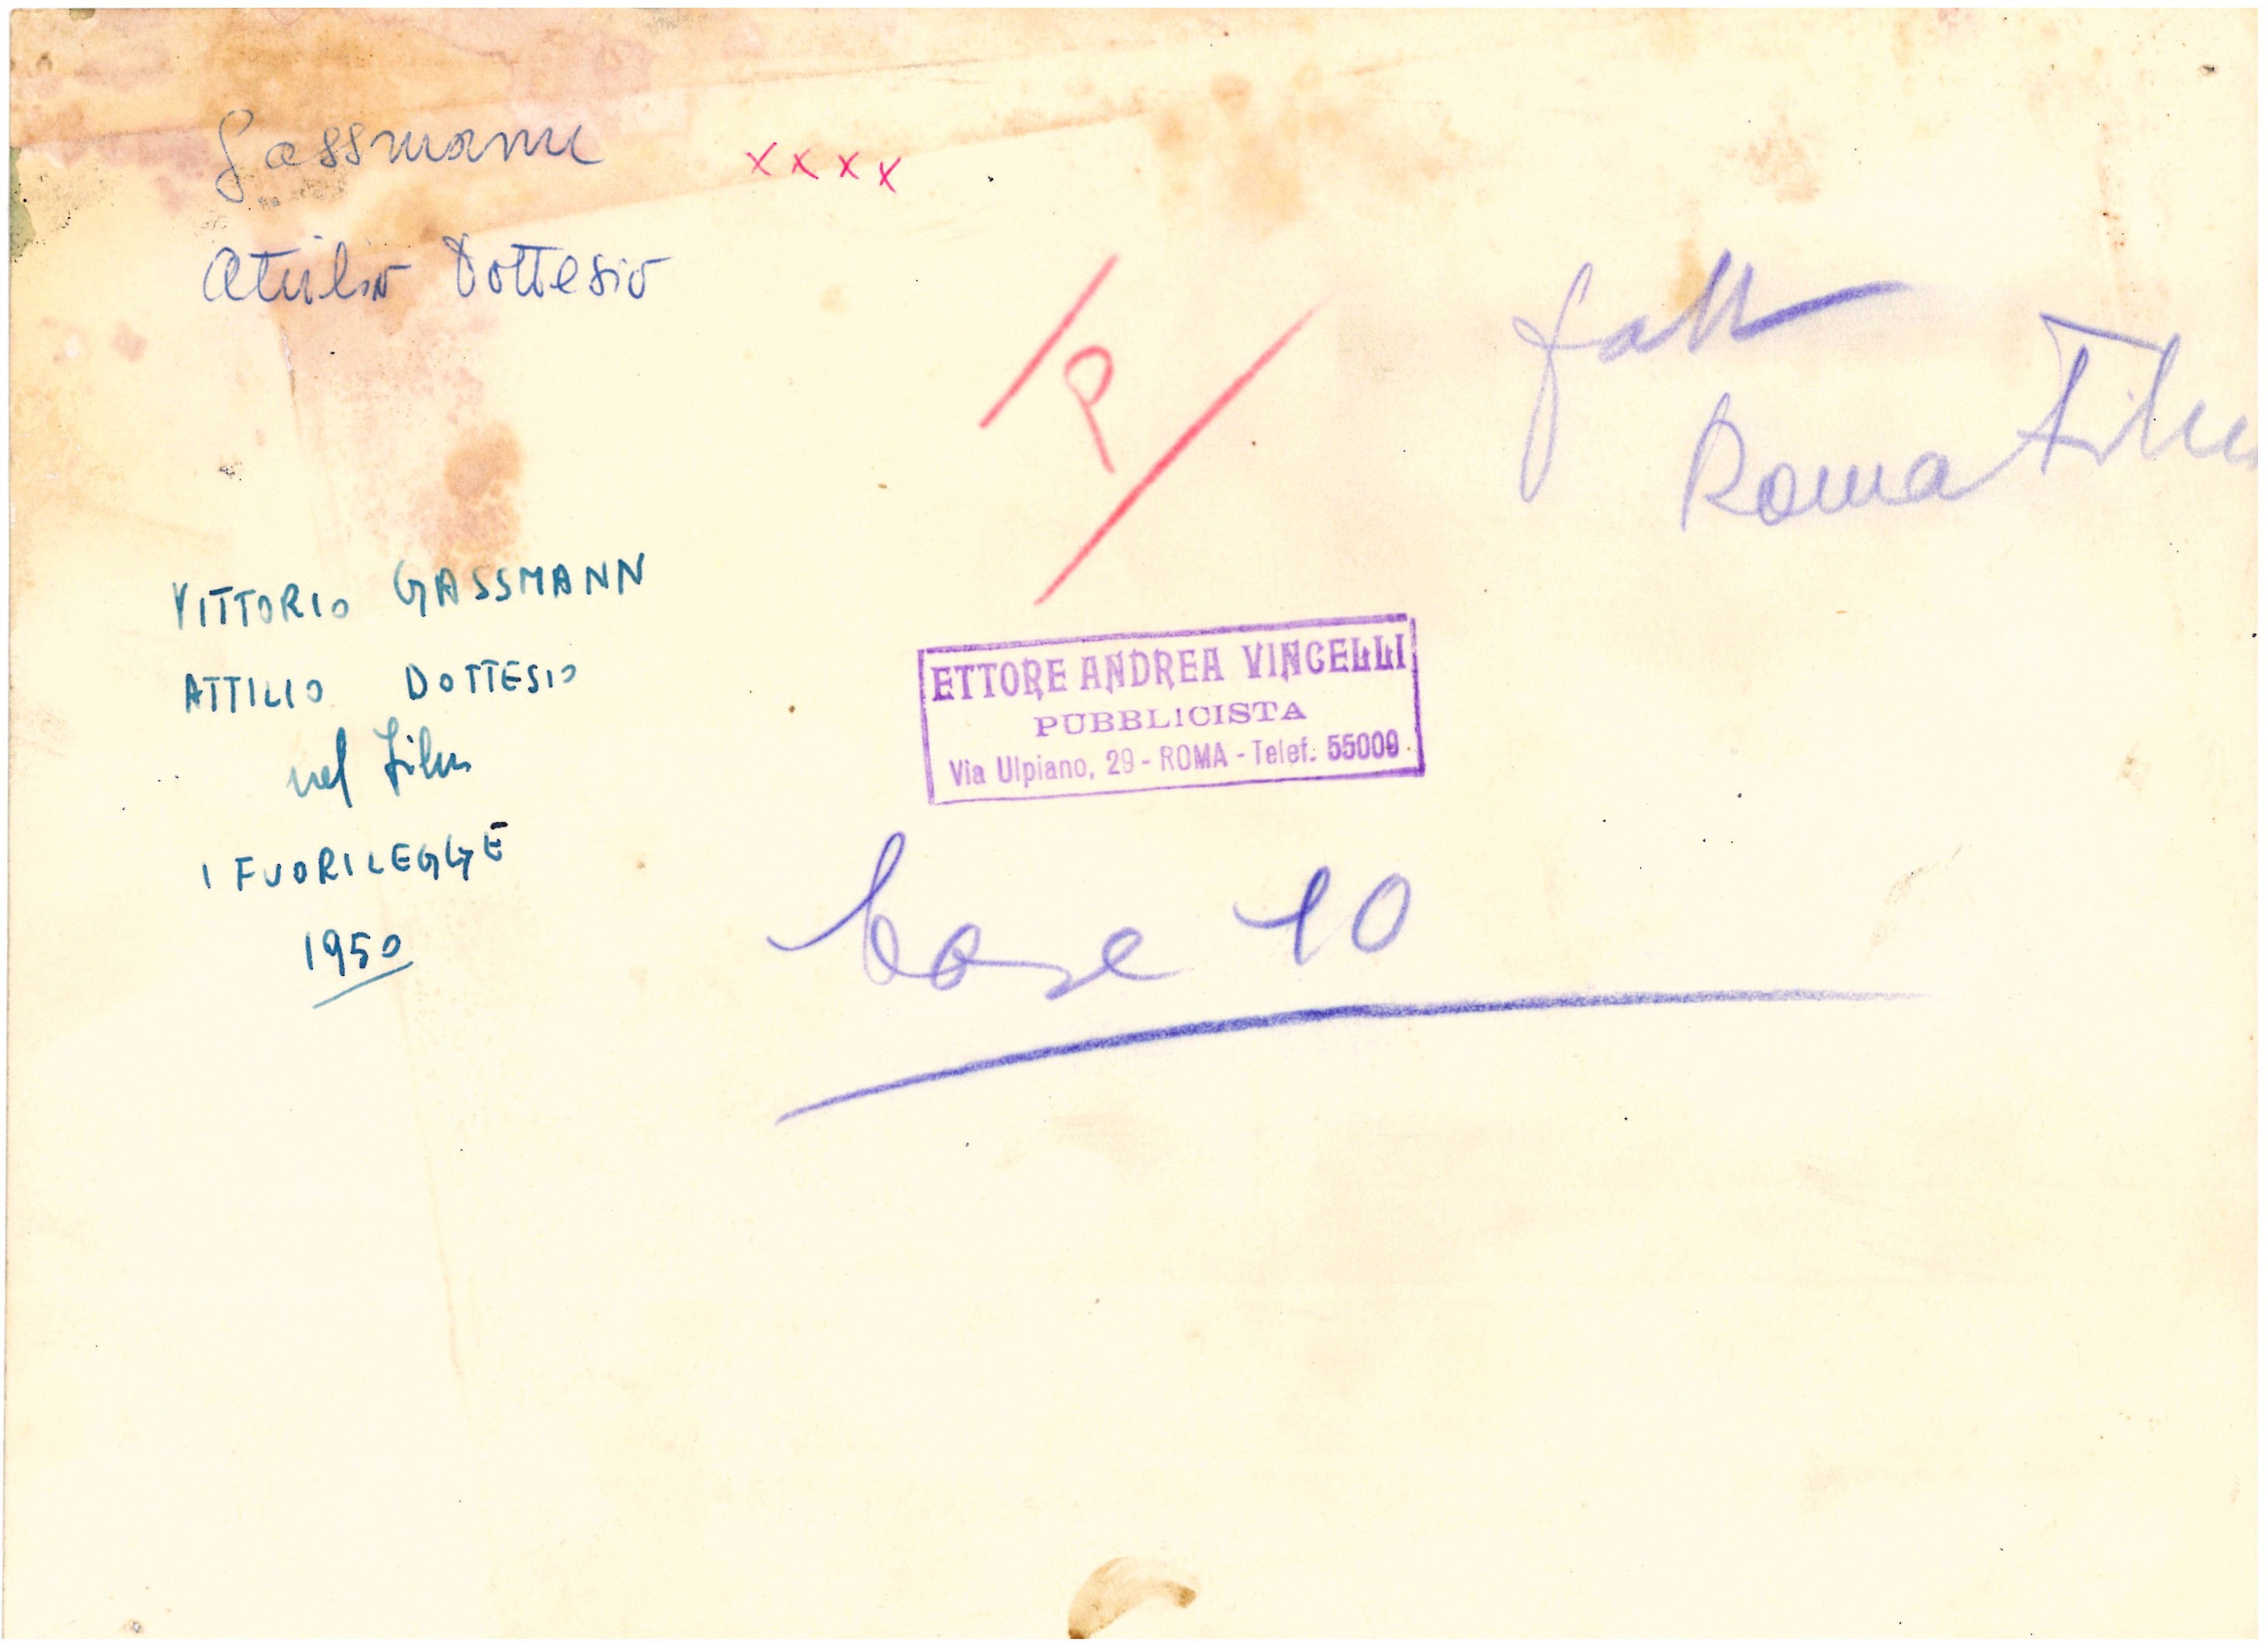 Gassmann
xxxx
Attilio Dottesio
P
Roma Film
VITTORIO GASSMANN
ATTILIO DOTTESIO
nel film
I FUORILEGGE
1950
ETTORE ANDREA VINCELLI
PUBBLICISTA
Via Ulpiano, 29 - ROMA - Telef. 55009
base 10